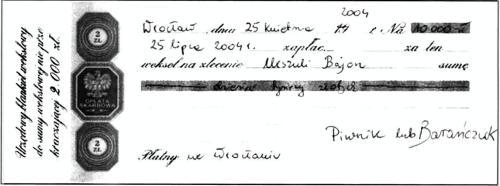 Urzędowy blankiet wekslowy
do sumy wekslowej nie prze-
kraczającej 2 000 zł.
2
ZŁ
OPŁATA
SKARBOWA
2
ZŁ
2004
Wrocław, dnia 25 kwietnia 19 r. Na 10 000 zł
25 lipca 2004 r. zapłac. za ten
weksel na zlecenie Urszuli Bajon sumę
złotych
Piwnik lub Barańczuk
Płatny we Wrocławiu